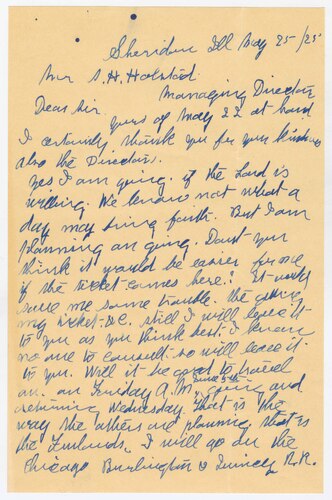 Sheridan Ill May 25-/25
Mr S. H. Holstad
Managing Director
Dear Sir
yours of May 22 at hand
I certainly thank you for your kindness
also the Directors.
Yes I am going. if the Lord is
willing. We know not what a
day may bring forth. But I am
planning on going. Dont you
think it would be easier for me
if the ticket comes here? It would
save me some trouble. the
my ticket still I will leave it
to you as you think best. I know
no one to consult so will leave it
to you. Will it be good to travel
on. on Friday A.M. June 5th going and
returning Wednesday. That is the
way the others are planning. that is
the I will go on the
Chicago Burlington & Quincy R.R.